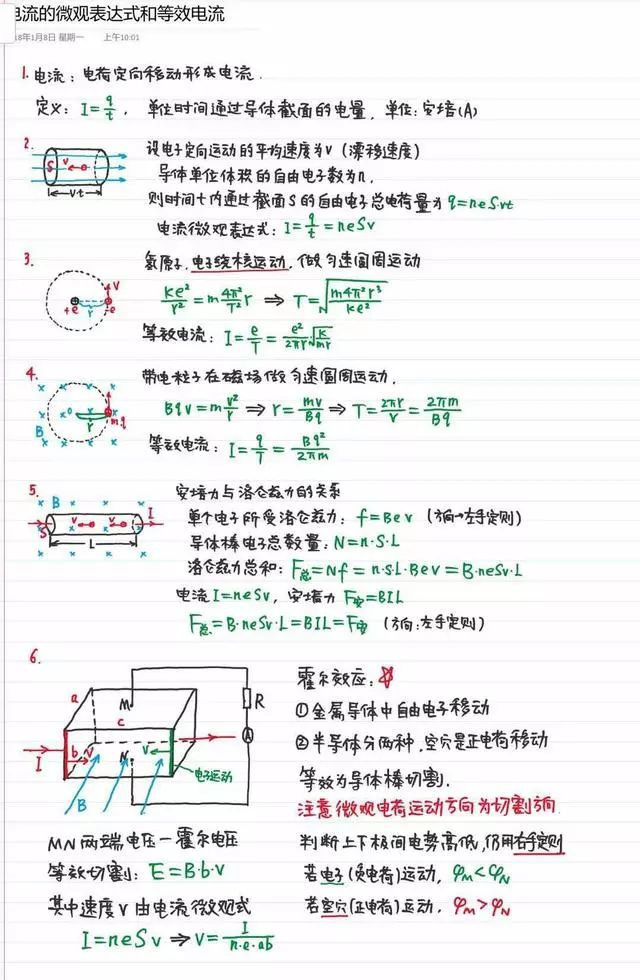 电流的微观表达式和等效电流
18年1月8日 星期一 上午10:01
1. 电流：电荷定向移动形成电流.
定义：I=q/t, 单位时间通过导体截面的电量, 单位：安培(A)
2. 设电子定向运动的平均速度为v (漂移速度)
S v
导体单位体积的自由电子数为n.
vt
则时间t内通过截面S的自由电子总电荷量为 q=neSvt
电流微观表达式：I=q/t=neSv
3. 氢原子, 电子绕核运动, 做匀速圆周运动
v
+e r -e
ke²/r²=m4π²/T² r ⇒ T=√(m4π²r³/ke²)
等效电流：I=e/T=e²/2πr √(k/mr)
4. 带电粒子在磁场做匀速圆周运动,
o r m.q B
Bqv=mv²/r ⇒ r=mv/Bq ⇒ T=2πr/v=2πm/Bq
等效电流：I=q/T=Bq²/2πm
5. 安培力与洛仑兹力的关系
B
单个电子所受洛仑兹力：f=Bev (方向→左手定则)
S v v I
导体棒电子总数量：N=n·S·L
L
洛仑兹力总和：F总=Nf=n·S·L·Bev=B·neSv·L
电流I=neSv, 安培力 F安=BIL
F总=B·neSv·L=BIL=F安 (方向：左手定则)
6.
霍尔效应：
a M R
①金属导体中自由电子移动
c
②半导体分两种, 空穴是正电荷移动
I b v N v A
电子运动
等效为导体棒切割.
B
注意微观电荷运动方向为切割方向
MN两端电压—霍尔电压
判断上下极间电势高低, 仍用右手定则
等效切割：E=B·b·v
若电子(负电荷)运动, φM<φN
其中速度v由电流微观式
若空穴(正电荷)运动, φM>φN
I=neSv ⇒ v=I/n·e·ab